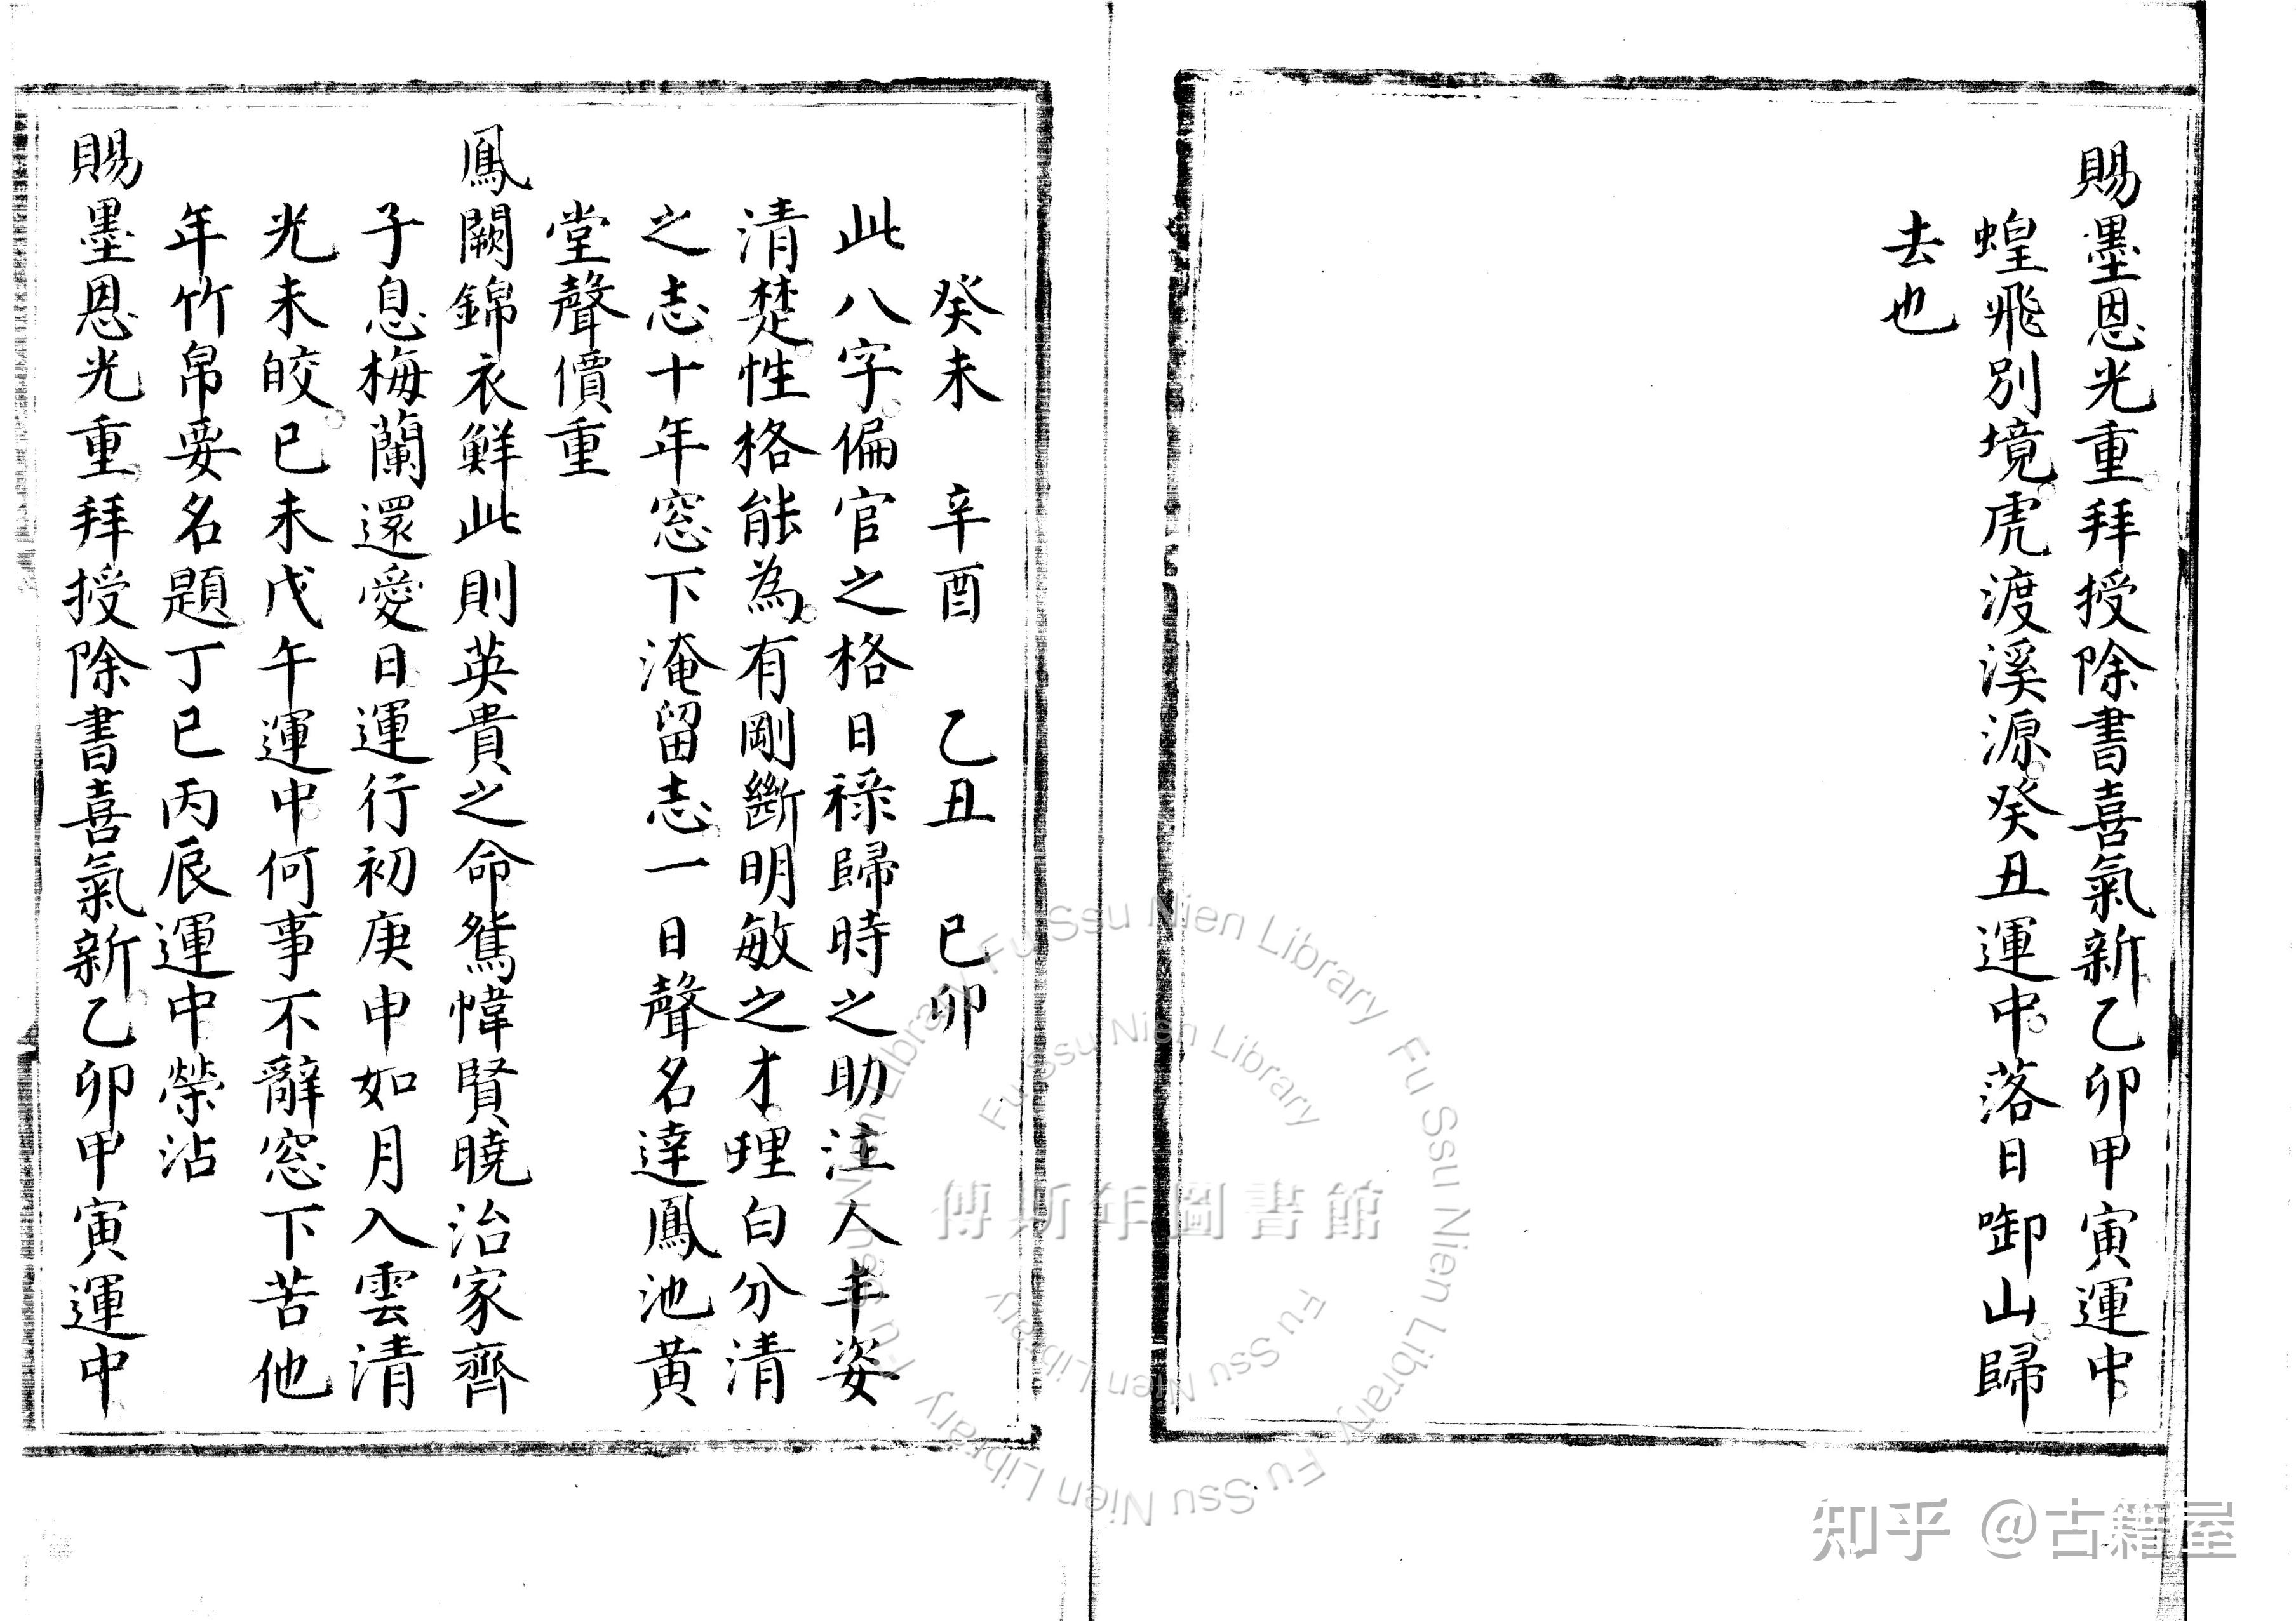 賜墨恩光重拜授除書喜氣新乙卯甲寅運中
蝗飛別境虎渡溪源癸丑運中落日啣山歸
去也
癸未 辛酉 乙丑 已卯
此八字偏官之格日祿歸時之助注人丰姿
清楚性格能為有剛斷明敏之才理白分清
之志十年窓下淹留志一日聲名達鳳池黃
堂聲價重
鳳闕錦衣鮮此則英貴之命鴛幃賢曉治家齊
子息梅蘭還愛日運行初庚申如月入雲清
光未皎已未戊午運中何事不辭窓下苦他
年竹帛要名題丁巳丙辰運中榮沾
賜墨恩光重拜授除書喜氣新乙卯甲寅運中
傅斯年圖書館
Fu Ssu Nien Library Fu Ssu Nien Library Fu Ssu Nien Library Fu Ssu Nien Library
Fu Ssu Nien Library
Fu Ssu Nien Library
知乎 @古籍屋